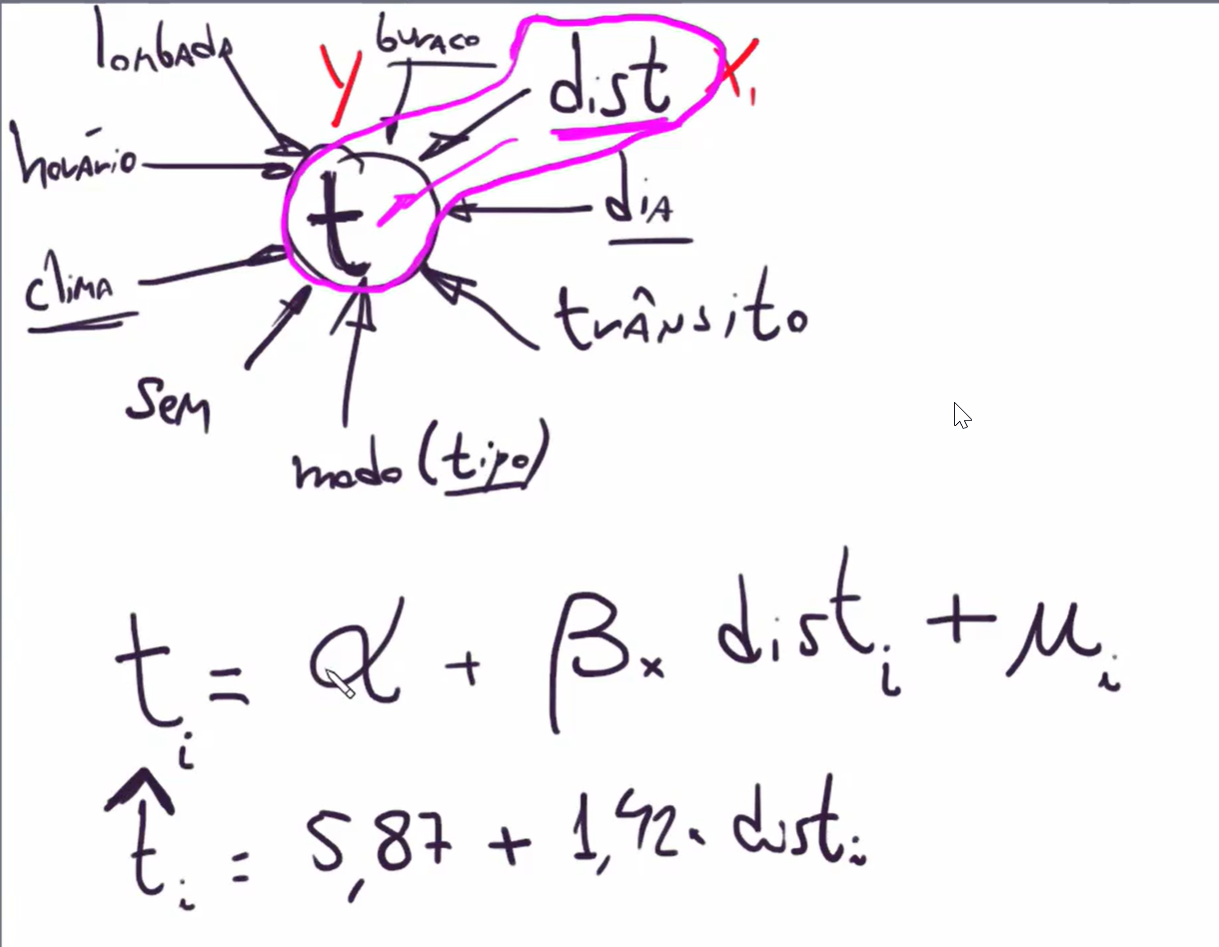 lombada
buraco
Y
dist
X₁
horário
t
dia
clima
trânsito
sem
modo (tipo)
tᵢ = α + β × distᵢ + μᵢ
t̂ᵢ = 5,87 + 1,42 . distᵢ